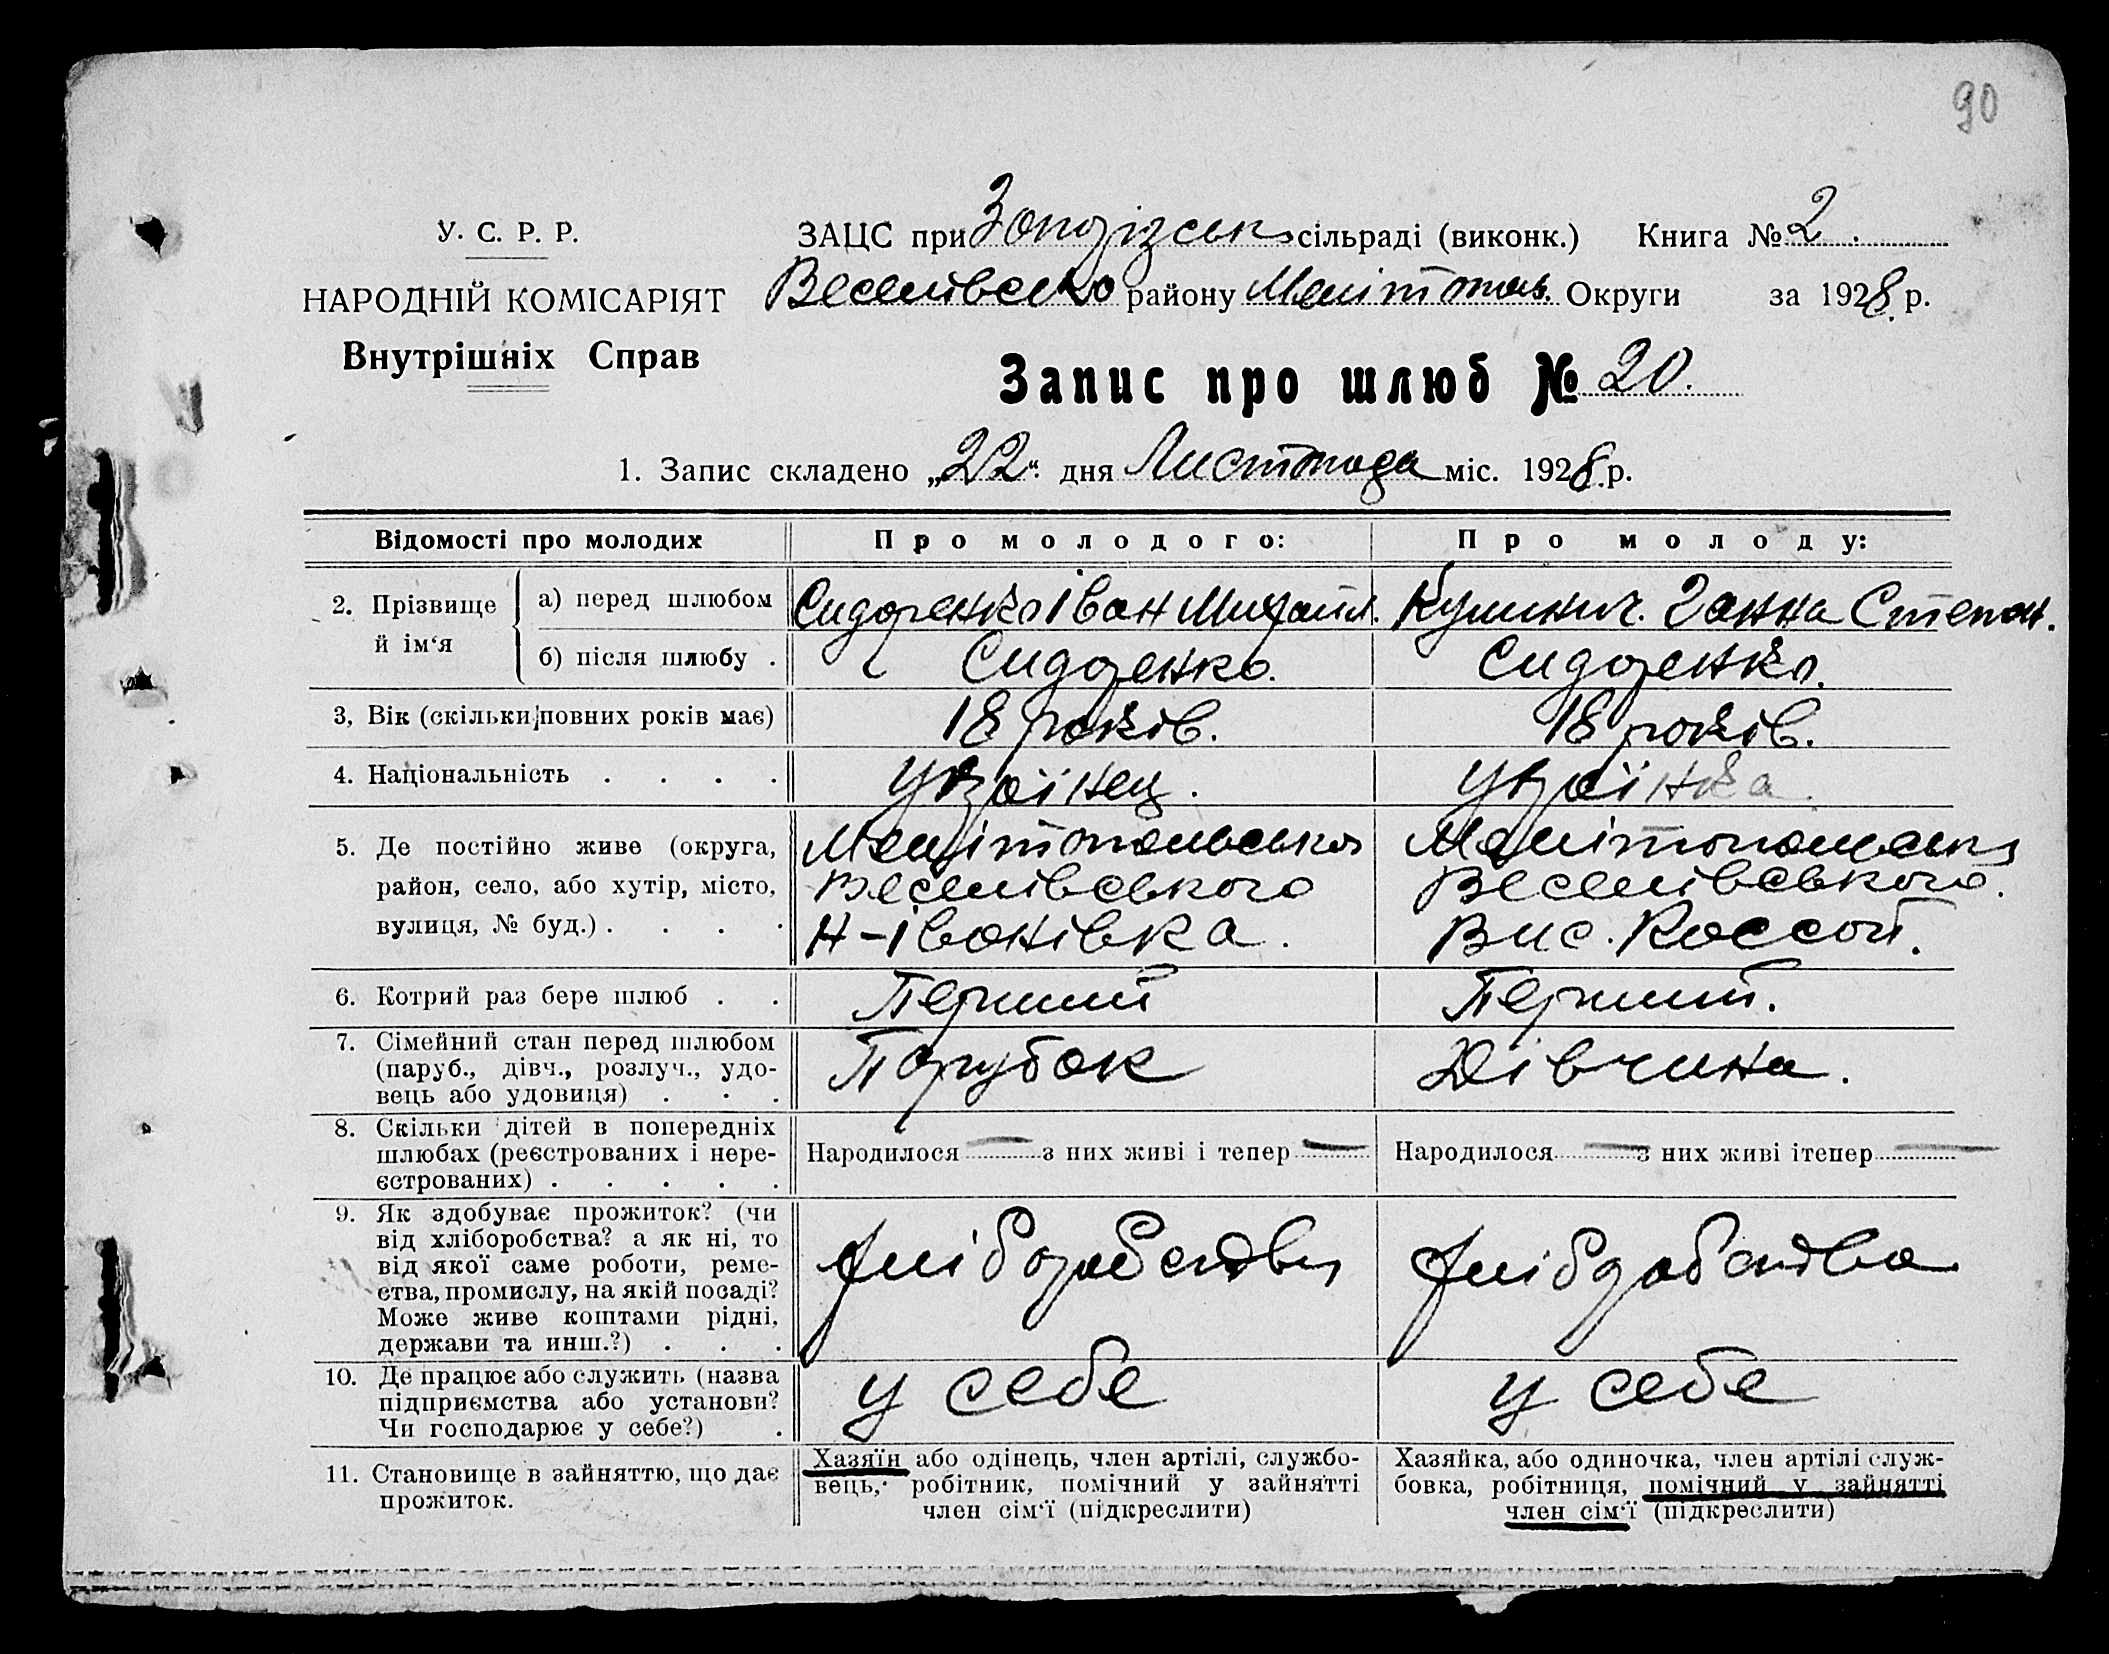 90
У. С. Р. Р.
ЗАЦС при сільраді (виконк.) Книга № 2.
НАРОДНІЙ КОМІСАРІЯТ
Веселівсько району Мелітопол. Округи за 1928 р.
Внутрішніх Справ
Запис про шлюб № 20.
1. Запис складено „22“ дня Листопада міс. 1928 р.
Відомості про молодих
Про молодого:
Про молоду:
2. Прізвище й ім‘я
а) перед шлюбом
Сидоренко Іван Михайл.
Ганна Степан.
б) після шлюбу .
Сидоренко.
Сидоренко.
3, Вік (скільки повних років має)
18 років.
18 років.
4. Національність . . . .
Українец.
Українка.
5. Де постійно живе (округа,
район, село, або хутір, місто,
вулиця, № буд.) . . . .
Мелітопольська
Веселівського
Н-Іванівка.
Мелітопольська
Веселівського.
Вис. Россой.
6. Котрий раз бере шлюб . .
Перший
Перший.
7. Сімейний стан перед шлюбом
(паруб., дівч., розлуч., удо-
вець або удовиця) . . .
Парубок
Дівчина.
8. Скільки дітей в попередніх
шлюбах (реєстрованих і нере-
єстрованих) . . . . .
Народилося — з них живі і тепер —
Народилося — з них живі ітепер —
9. Як здобуває прожиток? (чи
від хліборобства? а як ні, то
від якої саме роботи, реме-
ства, промислу, на якій посаді?
Може живе коштами рідні,
держави та инш.?) . . .
Хліборобство
Хліборобства
10. Де працює або служить (назва
підприємства або установи?
Чи господарює у себе?) .
у себе
у себе
11. Становище в зайняттю, що дає
прожиток.
Хазяїн або одінець, член артілі, службо-
вець, робітник, помічний у зайнятті
член сім‘ї (підкреслити)
Хазяйка, або одиночка, член артілі служ-
бовка, робітниця, помічний у зайнятті
член сім‘ї (підкреслити)